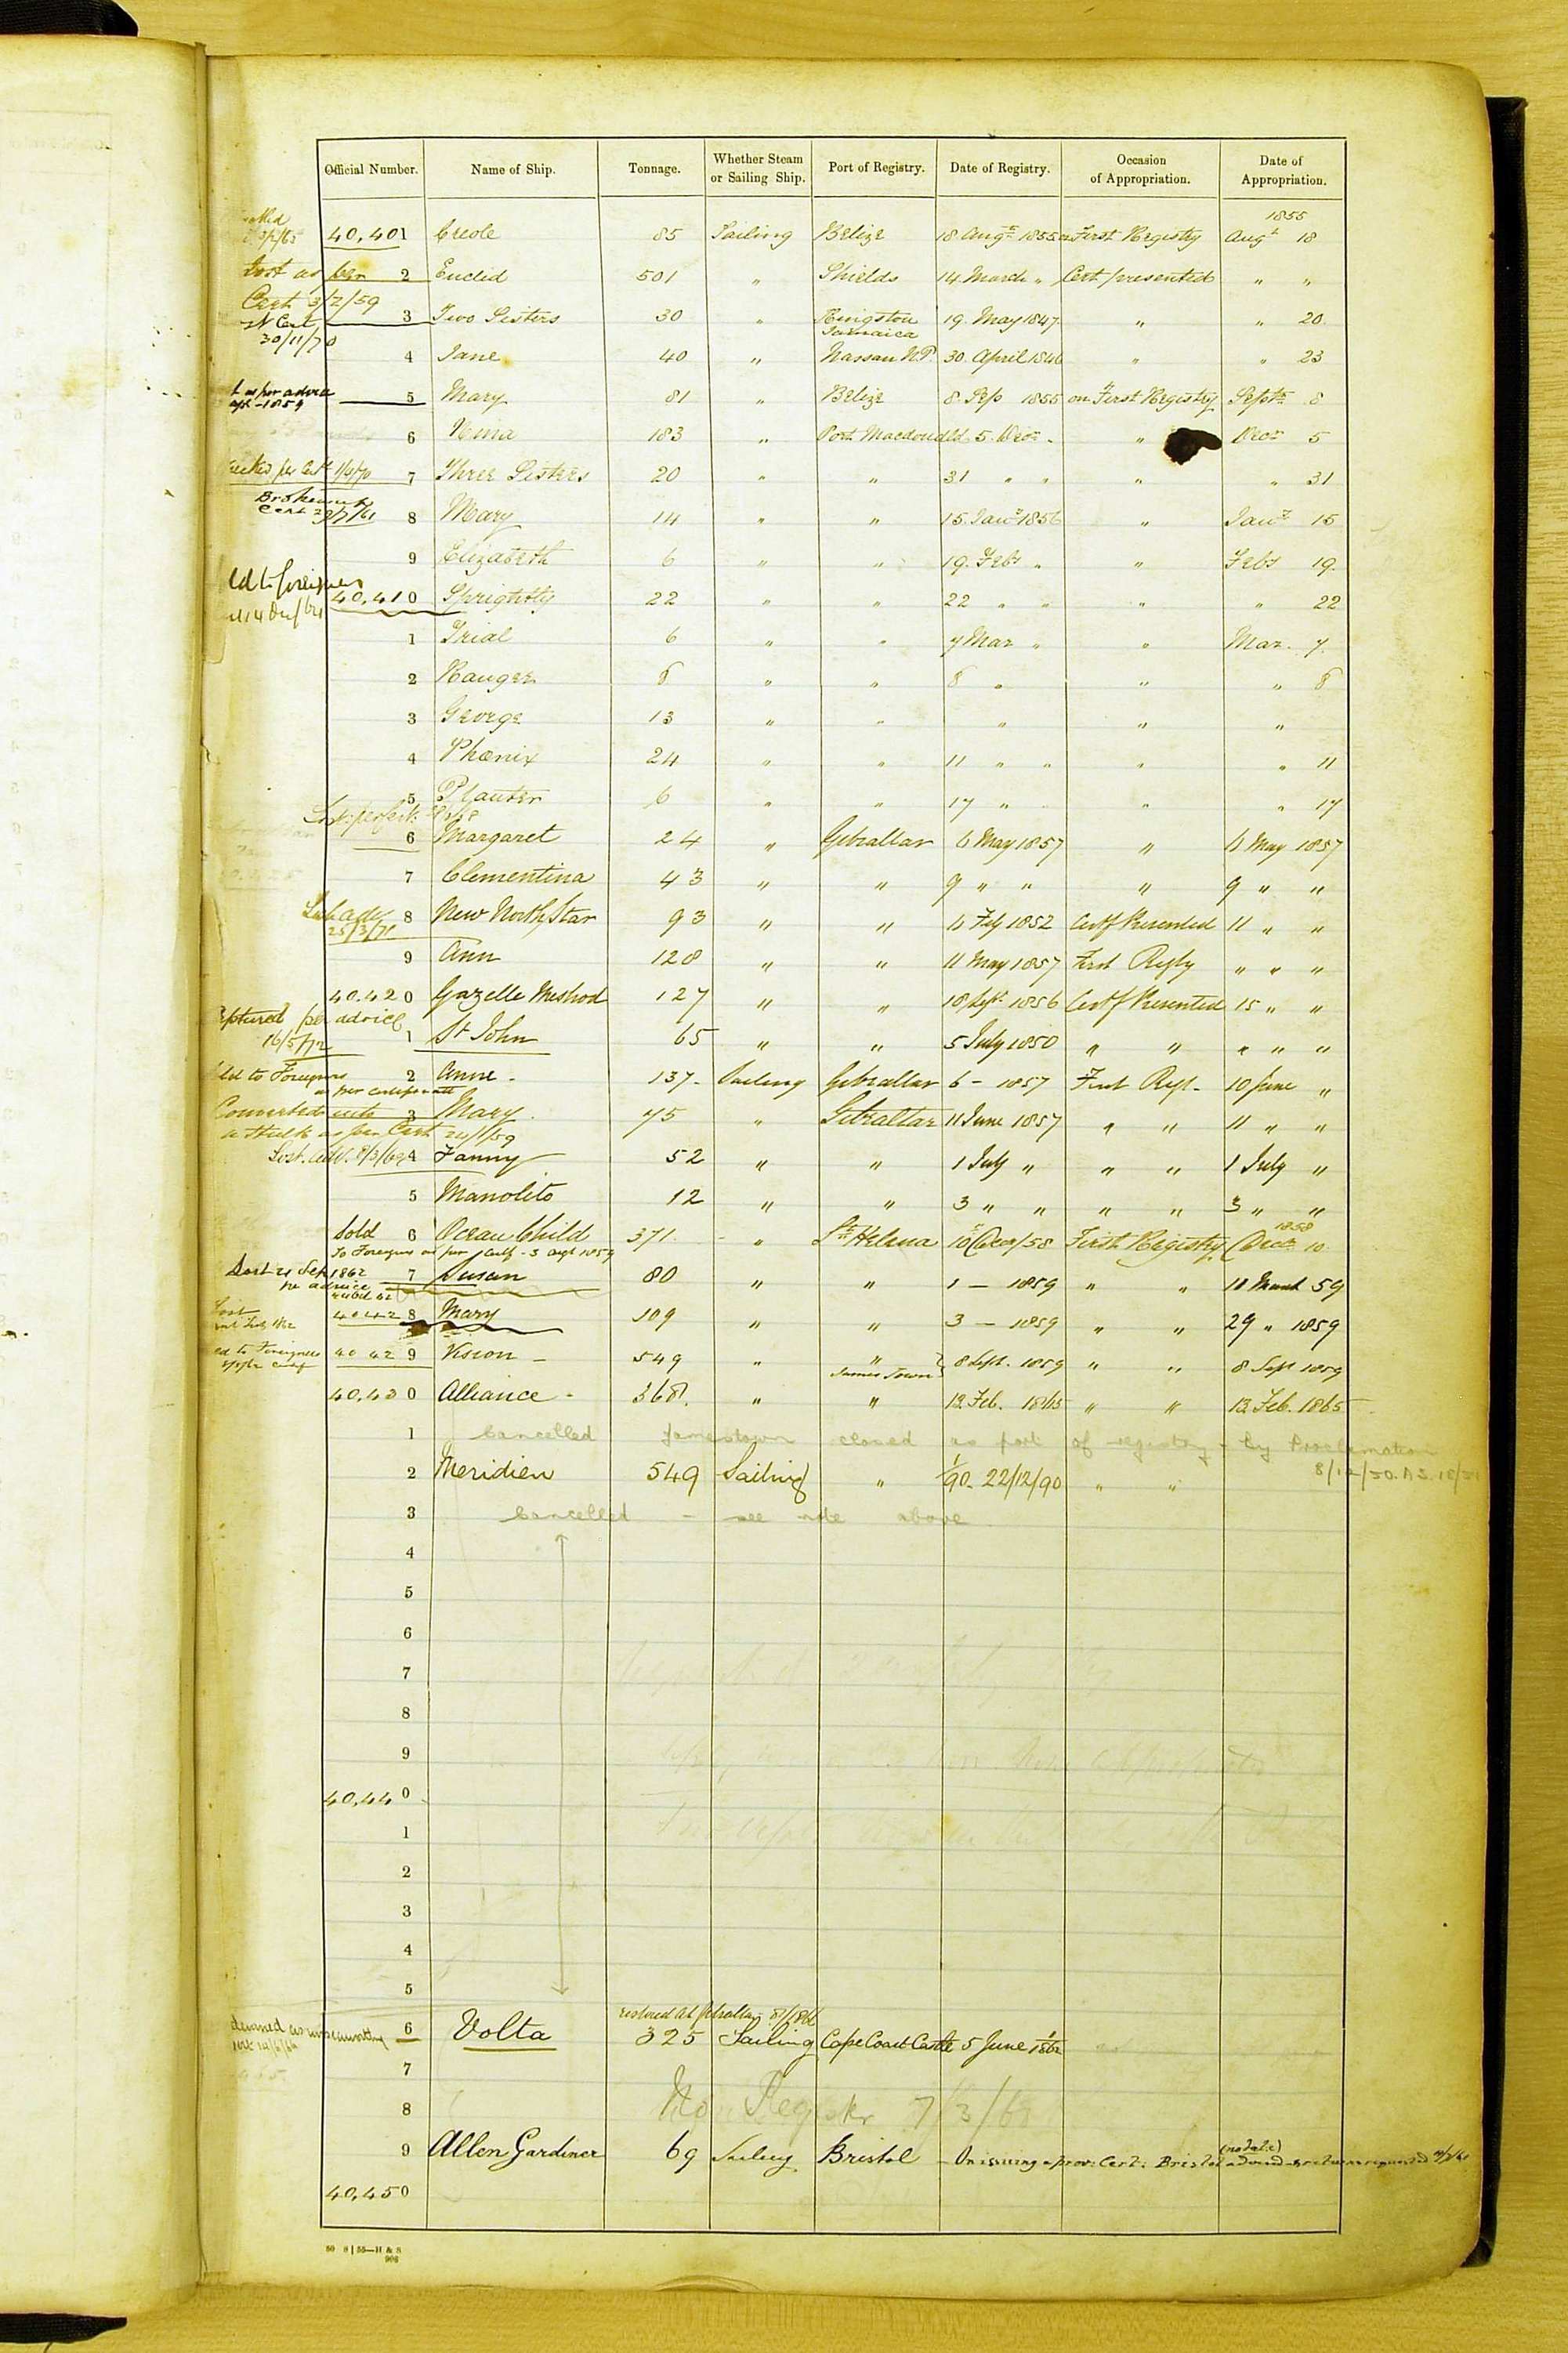 Official Number. Name of Ship. Tonnage. Whether Steam or Sailing Ship. Port of Registry. Date of Registry. Occasion of Appropriation. Date of Appropriation.
1855
40,401 Creole 85 Sailing Belize 18 Augt 1855 on First Registry Augt 18
Lost as per
2 Euclid 501 " Shields 14 March " Cert presented " "
Cert 3/2/59
3 Two Sisters 30 " Kingston Jamaica 19 May 1847 " " 20
30/11/70
4 Jane 40 " Nassau N.P. 30 April 1846 " " 23
as per advice
5 Mary 81 " Belize 8 Sep 1855 on First Registry Septr 8
6 183 " Port Macdonald 5 Decr " " Decr 5
per Cert 1/4/70
7 Three Sisters 20 " " 31 " " " " 31
Broken up
Cert
8 Mary 14 " " 15 Jany 1856 " Jany 15
9 Elizabeth 6 " " 19 Feby " " Feby 19
to foreigners
40,410 Sprightly 22 " " 22 " " " " 22
1 Trial 6 " " 7 Mar " " Mar. 7
2 Ranger 8 " " 8 " " " 8
3 George 13 " " " " "
4 Phœnix 24 " " 11 " " " " 11
5 Planter 6 " " 17 " " " 17
6 Margaret 24 " Gibraltar 6 May 1857 " 6 May 1857
7 Clementina 43 " " 9 " " " 9 " "
25/3/71
8 New North Star 93 " " 6 Feby 1852 Certf Presented 11 " "
9 Ann 128 " " 11 May 1857 First Regty " " "
40,420 Gazelle 127 " " 18 Sept 1856 Certf Presented 15 " "
per advice
16/5/72
1 St John 65 " " 5 July 1850 " " " " "
to Foreigners
2 Anne - 137 - Sailing Gibraltar 6 - 1857 First Regt - 10 June "
Converted into
3 Mary 75 " Gibraltar 11 June 1857 " " 11 " "
a Hulk as per Cert 24/1/59
Lost. adv. 8/3/69
4 Fanny 52 " " 1 July " " " 1 July "
5 Manolito 12 " " 3 " " " " 3 " "
1858
Sold 6 Ocean Child 371 " St Helena 10 Decr/58 First Registry Decr 10
To Foreigners as per Certf - 3 Augt 1859
Lost 21 Sep 1862
per advice
7 Susan 80 " " 1 - 1859 " " 10 March 59
40428 Mary 109 " " 3 - 1859 " " 29 " 1859
to Foreigners
40429 Vision - 549 " " James Town 8 Sept. 1859 " " 8 Sept 1859
40,430 Alliance - 368 " " 13 Feb. 1865 " " 13 Feb. 1865
1 Cancelled Jamestown closed as port of registry by Proclamation
8/12/50.
2 Meridien 549 Sailing " 1/90. 22/12/90 " "
3 Cancelled - see note above
4
5
6
7
8
9
40,440
1
2
3
4
5
as unseaworthy
6 Volta 325 Sailing Cape Coast Castle 5 June 1/1862
7
8 Non Register 7/3/61
9 Allen Gardiner 69 Sailing Bristol - On issuing a prov: Cert: Bristol (no date)
40,450
50 8 | 55—H & S